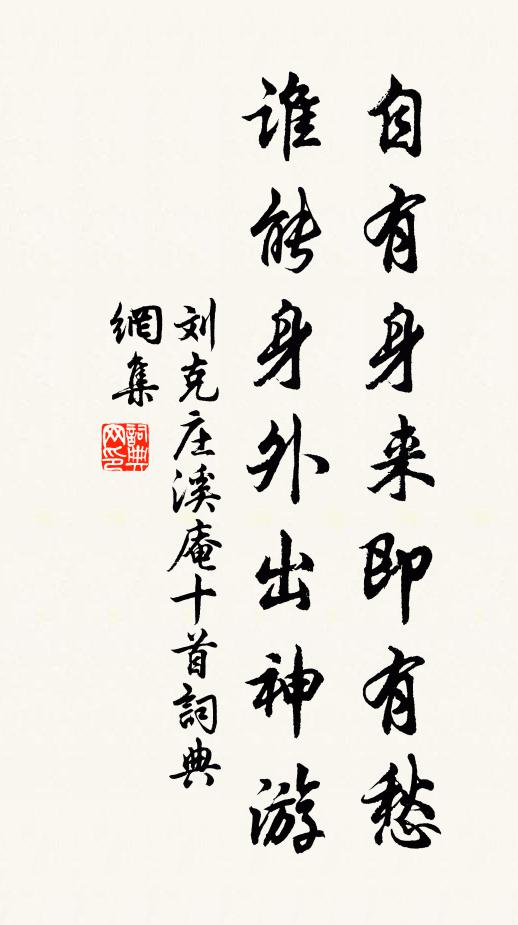 自有身来即有愁
谁能身外出神游
刘克庄溪庵十首詞典
網集
詞典
网印